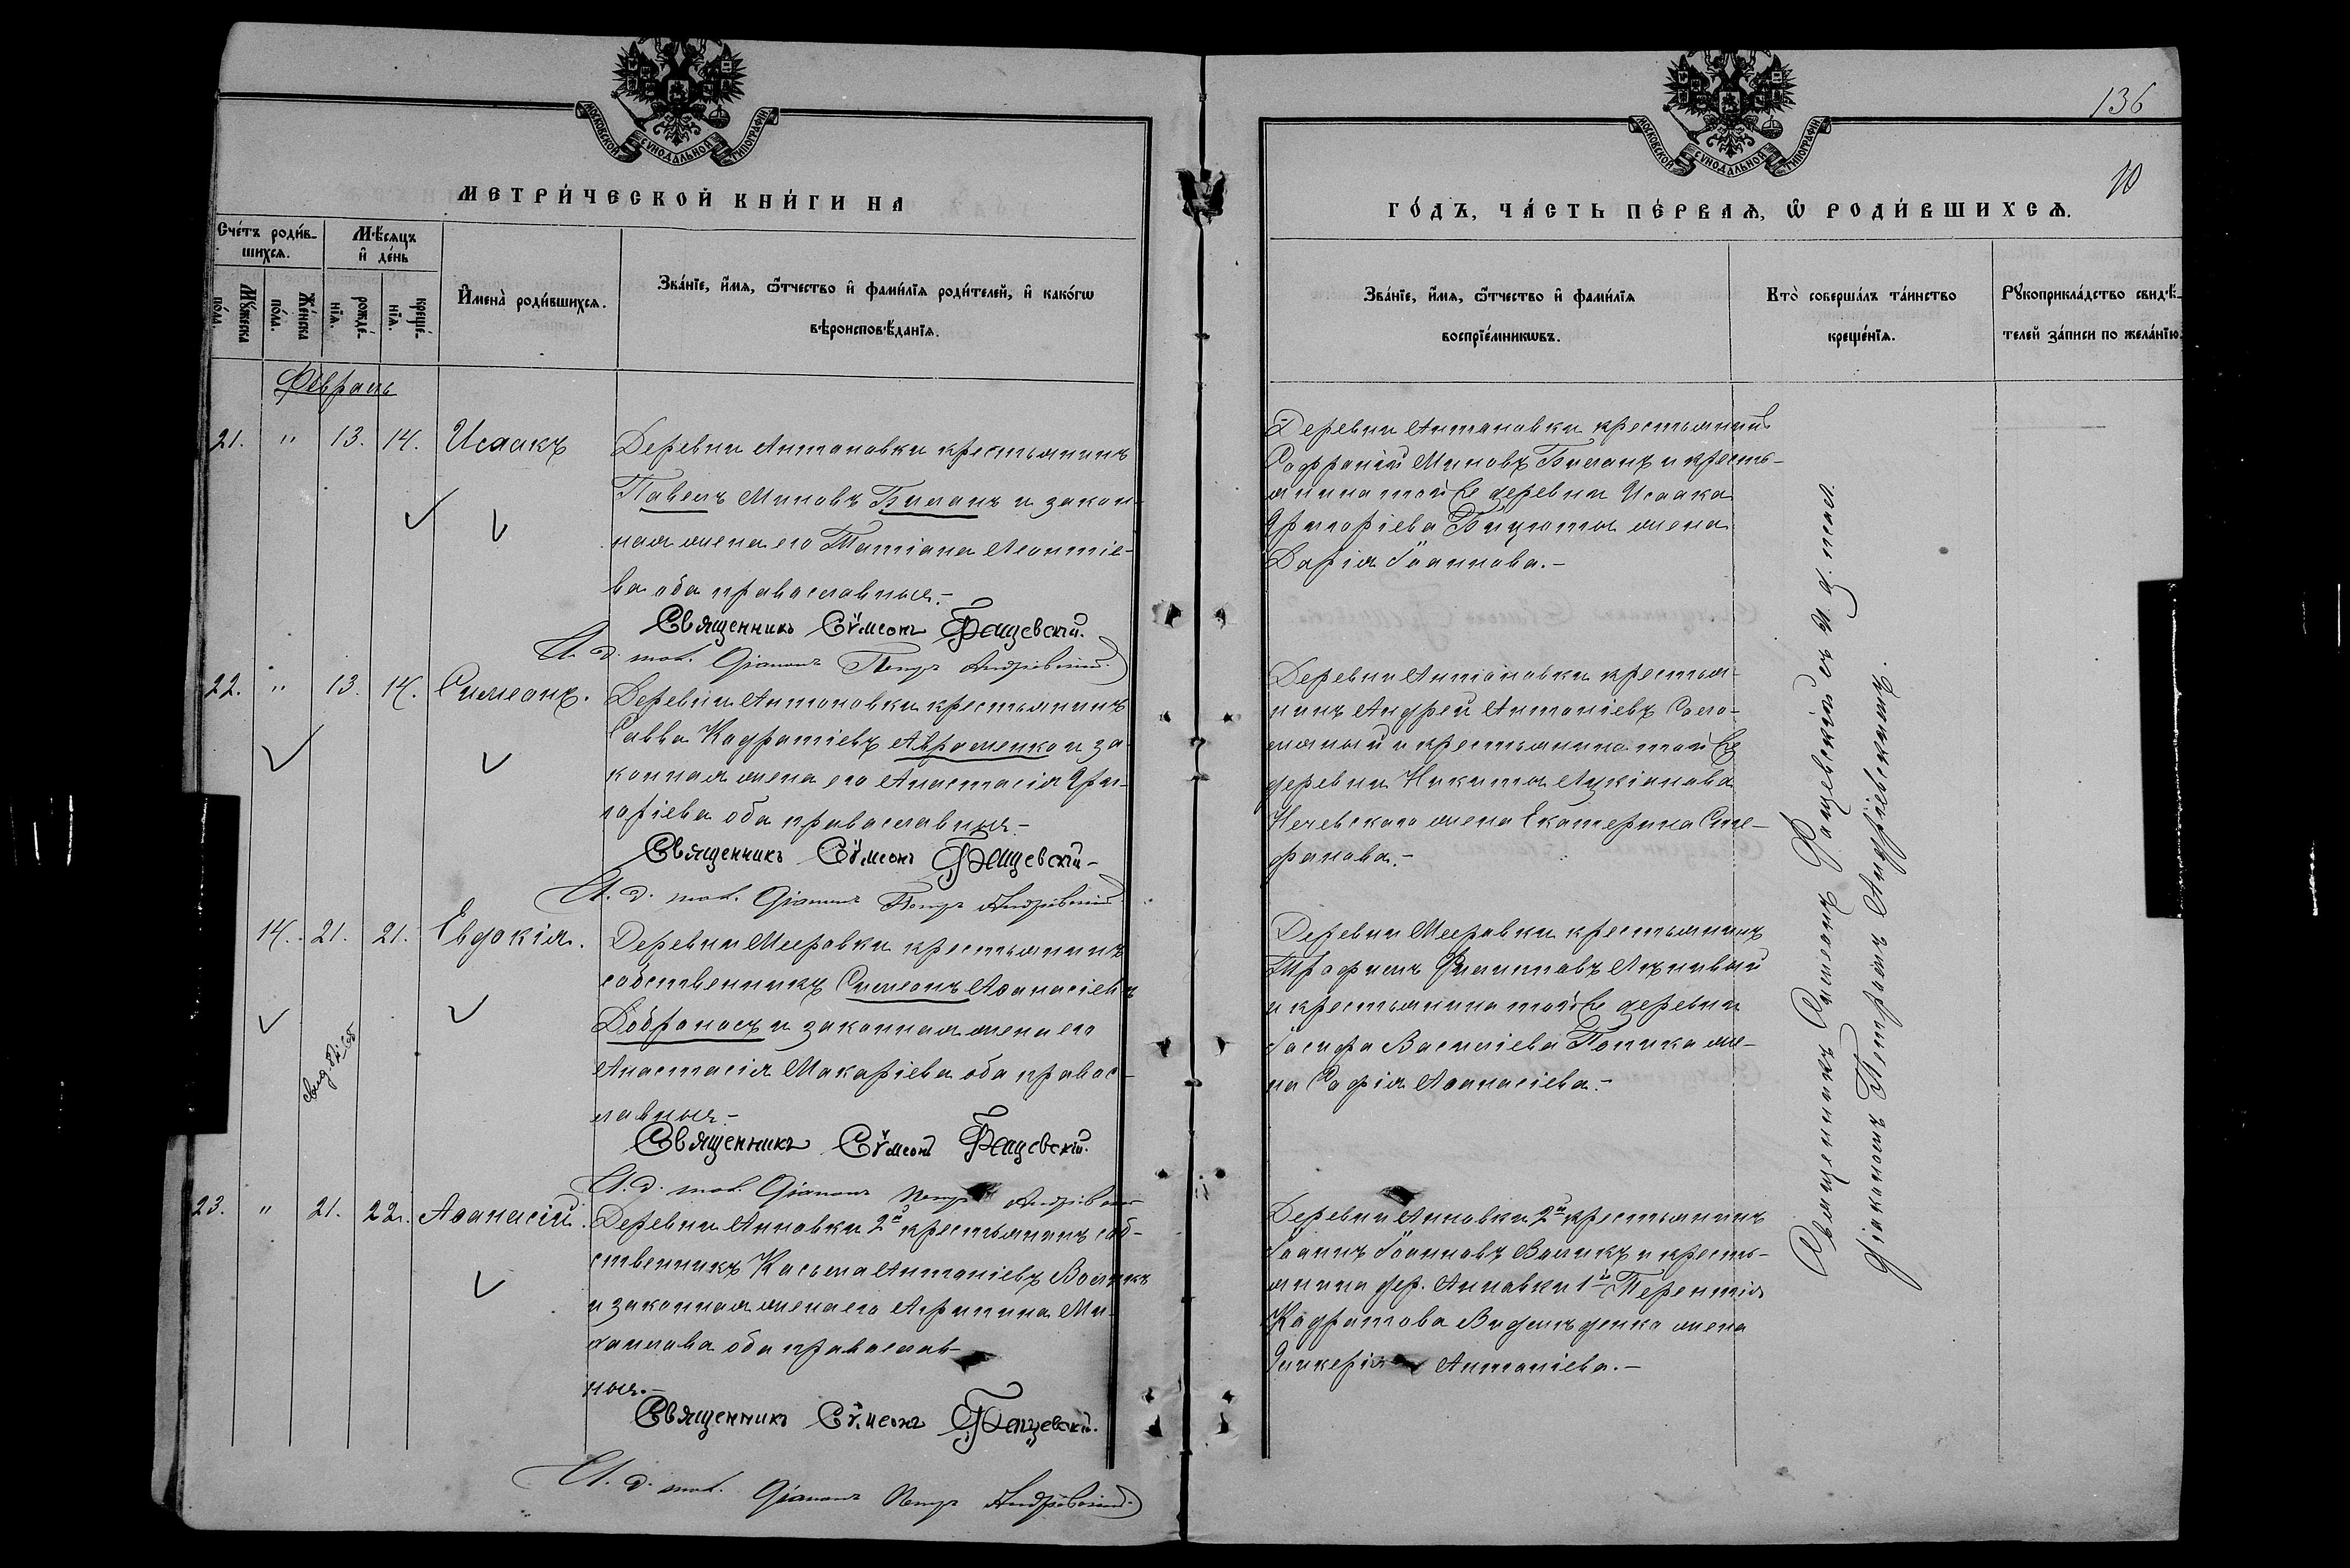 МОСКОВСКОЙ СѴНОДАЛЬНОЙ ТИПОГРАФІИ
МЕТРИ́ЧЕСКОЙ КНИ́ГИ НА
Сче́тъ роди́в-
шихсѧ.
Мѣ́сѧцъ
и҆ де́нь
Мꙋ́жеска
по́ла.
Же́нска
по́ла.
рожде́-
нїѧ.
креще́-
нїѧ.
И҆мена̀ роди́вшихсѧ.
Зва́нїе, и҆́мѧ, ѻ҆́тчество и҆ фами́лїѧ роди́телей, и҆ како́гѡ
вѣроисповѣ́данїѧ.
Февраль
21. " 13. 14. Исаакъ
Деревни Антоновки крестьянинъ
Павелъ Миновъ Билакъ и закон-
ная жена его Татіана Леонтіе-
ва оба православные.-
Священникъ Сѵмеонъ Фащевскій.
И. д. псал. Діаконъ Петръ Андріевскій
22. " 13. 14. Симеонъ.
Деревни Антоновки крестьянинъ
Савва Кодратіевъ Авраменко и за-
конная жена его Анастасія Гри-
горіева оба православные.-
Священникъ Сѵмеонъ Фащевскій-
И. д. псал. Діаконъ Петръ Андріевскій
14. 21. 21. Евдокія.
Деревни Мееровки крестьянинъ
собственникъ Симеонъ Аѳанасіевъ
Доброносъ и законная жена его
Анастасія Макаріева оба правос-
лавные.-
Священникъ Сѵмеонъ Фащевскій.
И. д. псал. Діаконъ Петръ Андріевскій
23. " 21. 22. Аѳанасій.
Деревни Анновки 2й крестьянинъ соб-
ственникъ Косьма Антоніевъ Воликъ
и законная жена его Агрипина Ми-
хаилова оба православ-
ные.-
Священникъ Сѵмеонъ Фащевскій.
И. д. псал. Діаконъ Петръ Андріевскій
136
10
МОСКОВСКОЙ СѴНОДАЛЬНОЙ ТИПОГРАФІИ
ГО́ДЪ, ЧА́СТЬ ПЕ́РВАѦ, Ѽ РОДИ́ВШИХСѦ.
Зва́нїе, и҆́мѧ, ѻ҆́тчество и҆ фами́лїѧ
воспрїе́мникѡвъ.
Кто̀ соверша́лъ та́инство
креще́нїѧ.
Рꙋкоприкла́дство свидѣ́-
телей за́писи по жела́нїю.
Деревни Антоновки крестьянинъ
Софроній Миновъ Билакъ и кресть-
янина той же деревни Исаака
Григоріева жена
Дарія Іоаннова.-
Деревни Антоновки крестья-
нинъ Андрей Антоніевъ Соло-
мяный и крестьянина той же
деревни Никиты Лукіанова
Нечевского жена Екатерина Сте-
фанова.-
Деревни Мееровки крестьянинъ
Трофимъ Филиповъ
и крестьянина той же деревни
Іосифа Василіева Попика же-
на Софія Аѳанасіева.-
Деревни Анновки 2й крестьянинъ
Іоаннъ Іоанновъ Воликъ и кресть-
янина дер. Анновки 1й Терентія
Кодратова жена
Гликерія Антоніева.-
Священникъ Симеонъ Фащевскій съ И. д. псал.
Діакономъ Петромъ Андріевскимъ.